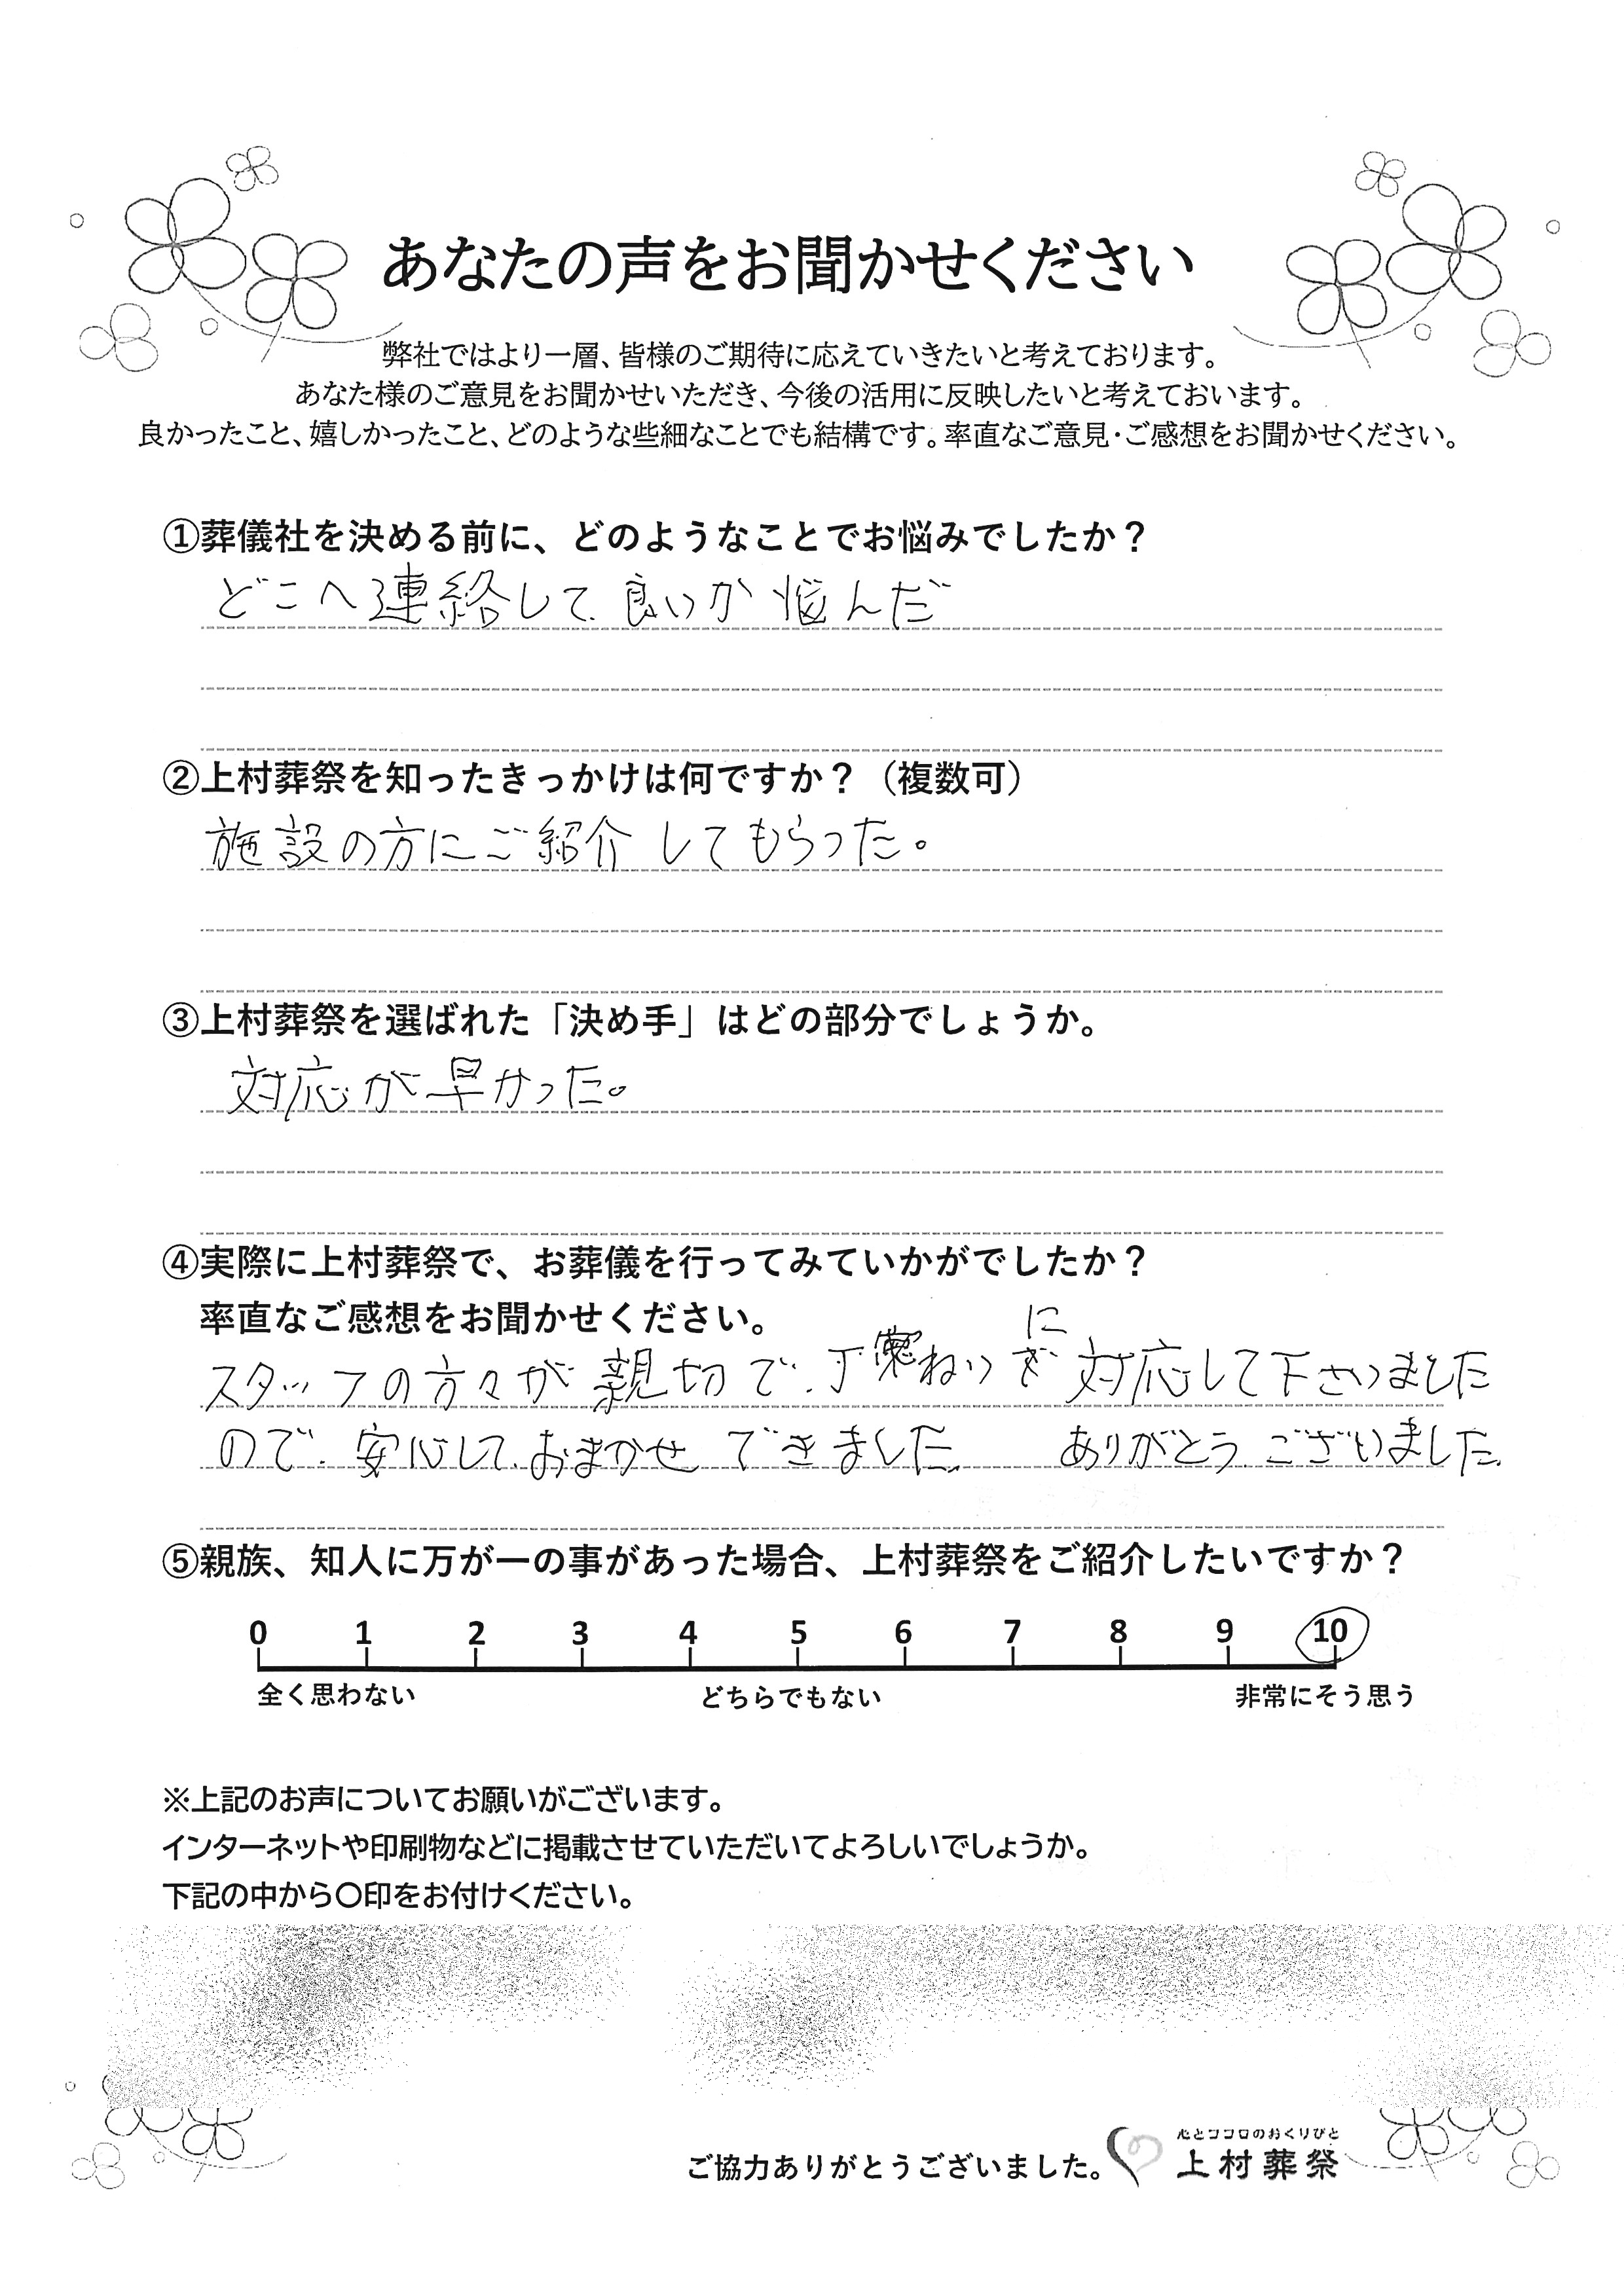 あなたの声をお聞かせください
弊社ではより一層、皆様のご期待に応えていきたいと考えております。
あなた様のご意見をお聞かせいただき、今後の活用に反映したいと考えておいます。
良かったこと、嬉しかったこと、どのような些細なことでも結構です。率直なご意見・ご感想をお聞かせください。
①葬儀社を決める前に、どのようなことでお悩みでしたか？
どこへ連絡して良いか悩んだ
②上村葬祭を知ったきっかけは何ですか？（複数可）
施設の方にご紹介してもらった。
③上村葬祭を選ばれた「決め手」はどの部分でしょうか。
対応が早かった。
④実際に上村葬祭で、お葬儀を行ってみていかがでしたか？
率直なご感想をお聞かせください。
スタッフの方々が親切で、丁ねいに対応して下さいました
ので、安心しておまかせできました。 ありがとうございました。
⑤親族、知人に万が一の事があった場合、上村葬祭をご紹介したいですか？
0 1 2 3 4 5 6 7 8 9 10
全く思わない どちらでもない 非常にそう思う
※上記のお声についてお願いがございます。
インターネットや印刷物などに掲載させていただいてよろしいでしょうか。
下記の中から〇印をお付けください。
心とココロのおくりびと
ご協力ありがとうございました。 上村葬祭